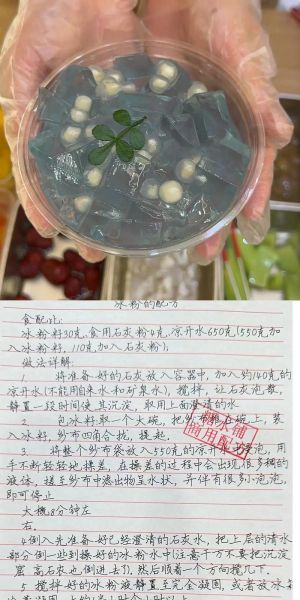 冰粉的配方
食配比:
冰粉籽30克、食用石灰粉4克、凉开水650克(550克加
入冰粉籽，110克加入石灰粉)，
做法详解:
将准备好的石灰放入容器中，加入约140克的
凉开水(不能用自来水和矿泉水)，搅拌，让石灰泡散，
静置一段时间使其沉淀，取用上面澄清的水
2 包冰籽取一个大碗，把纱布铺在碗上，装
入冰籽，纱布四角合拢，提起，
3、将整个纱布袋放入550克的凉开水里浸泡，用
手不断轻轻地揉差，在揉差的过程中会出现很多稠的
液体，搓至纱布中滤出物呈水状，并伴有很多小泡泡，
即可停止
大概8分钟左
右，
4倒入先准备好已经澄清的石灰水，把上层的清水
部分倒一些到揉好的冰粉水中(注意千万不要把沉淀
高石灰也倒进去)，然后顺着一个方向搅几下，
5 搅拌好的冰粉液静置至完全凝固，或者放冰
商用配